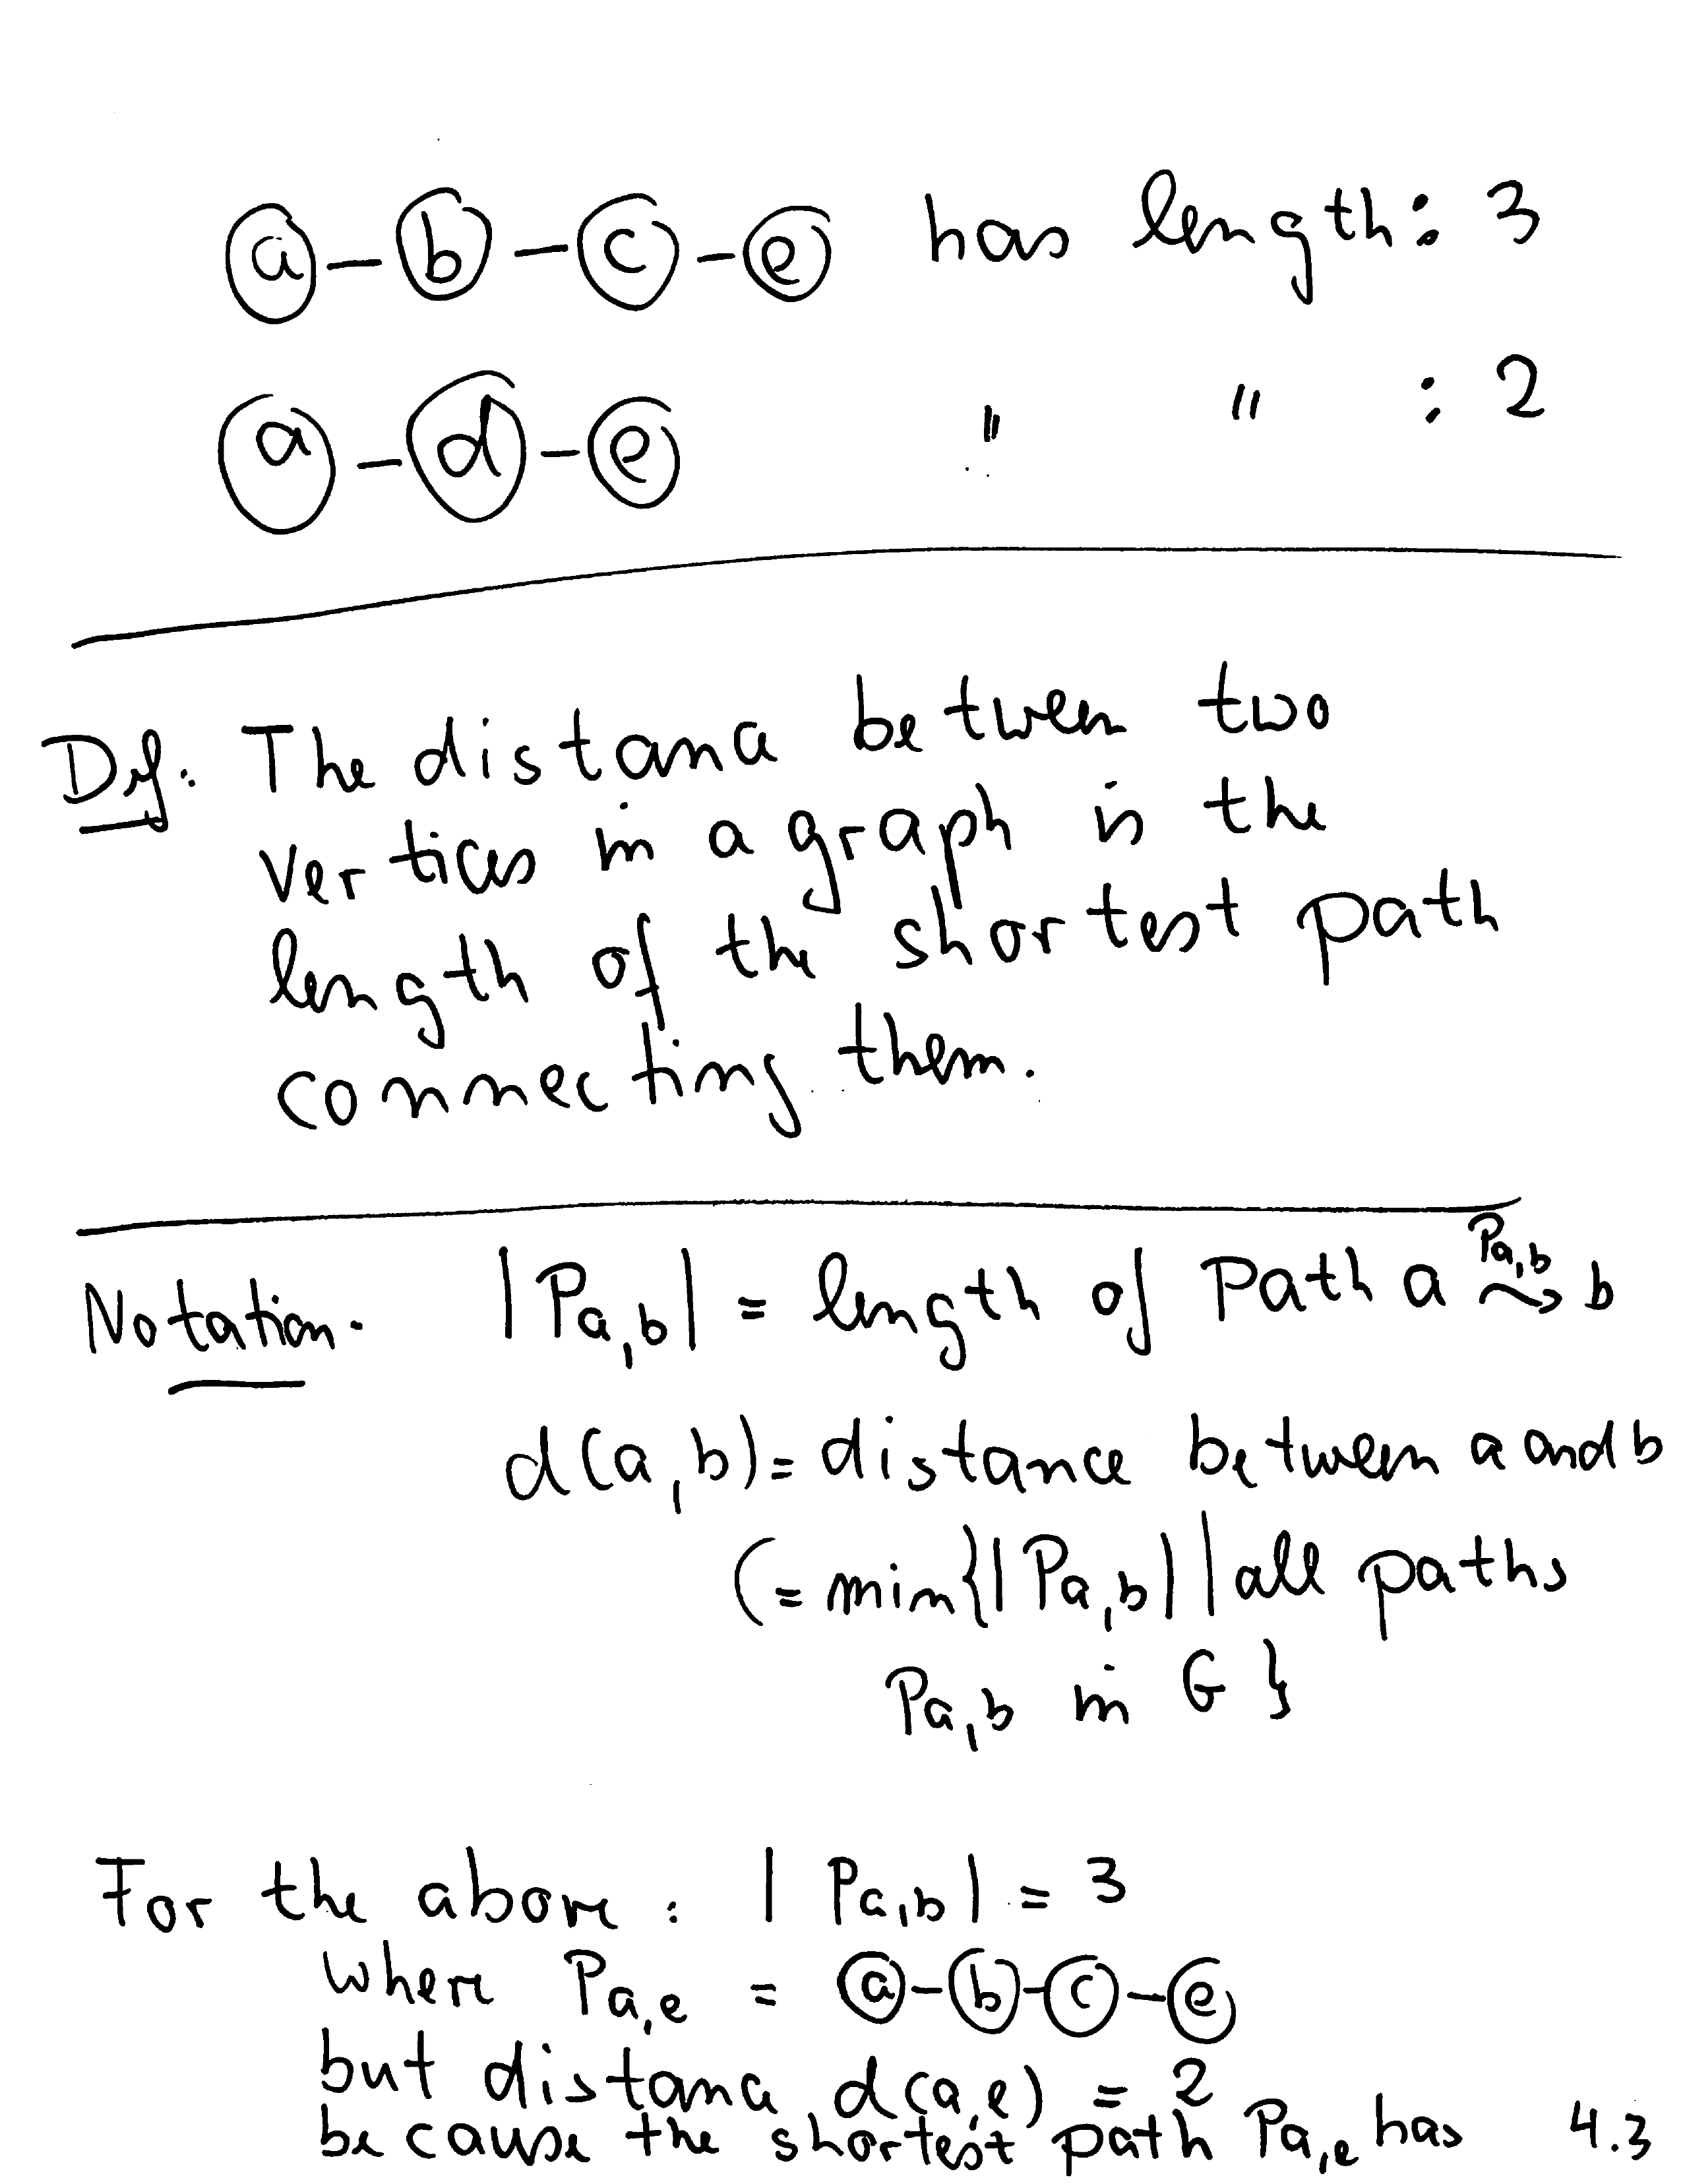 a - b - c - e has length: 3
a - d - e " " : 2
Def: The distance between two
vertices in a graph is the
length of the shortest path
connecting them.
Notation. |Pa,b| = length of Path a Pa,b ⤳ b
d(a,b) = distance between a and b
(= min{|Pa,b| | all paths
Pa,b in G }
For the above: |Pa,b| = 3
where Pa,e = a - b - c - e
but distance d(a,e) = 2
because the shortest path Pa,e has 4.3